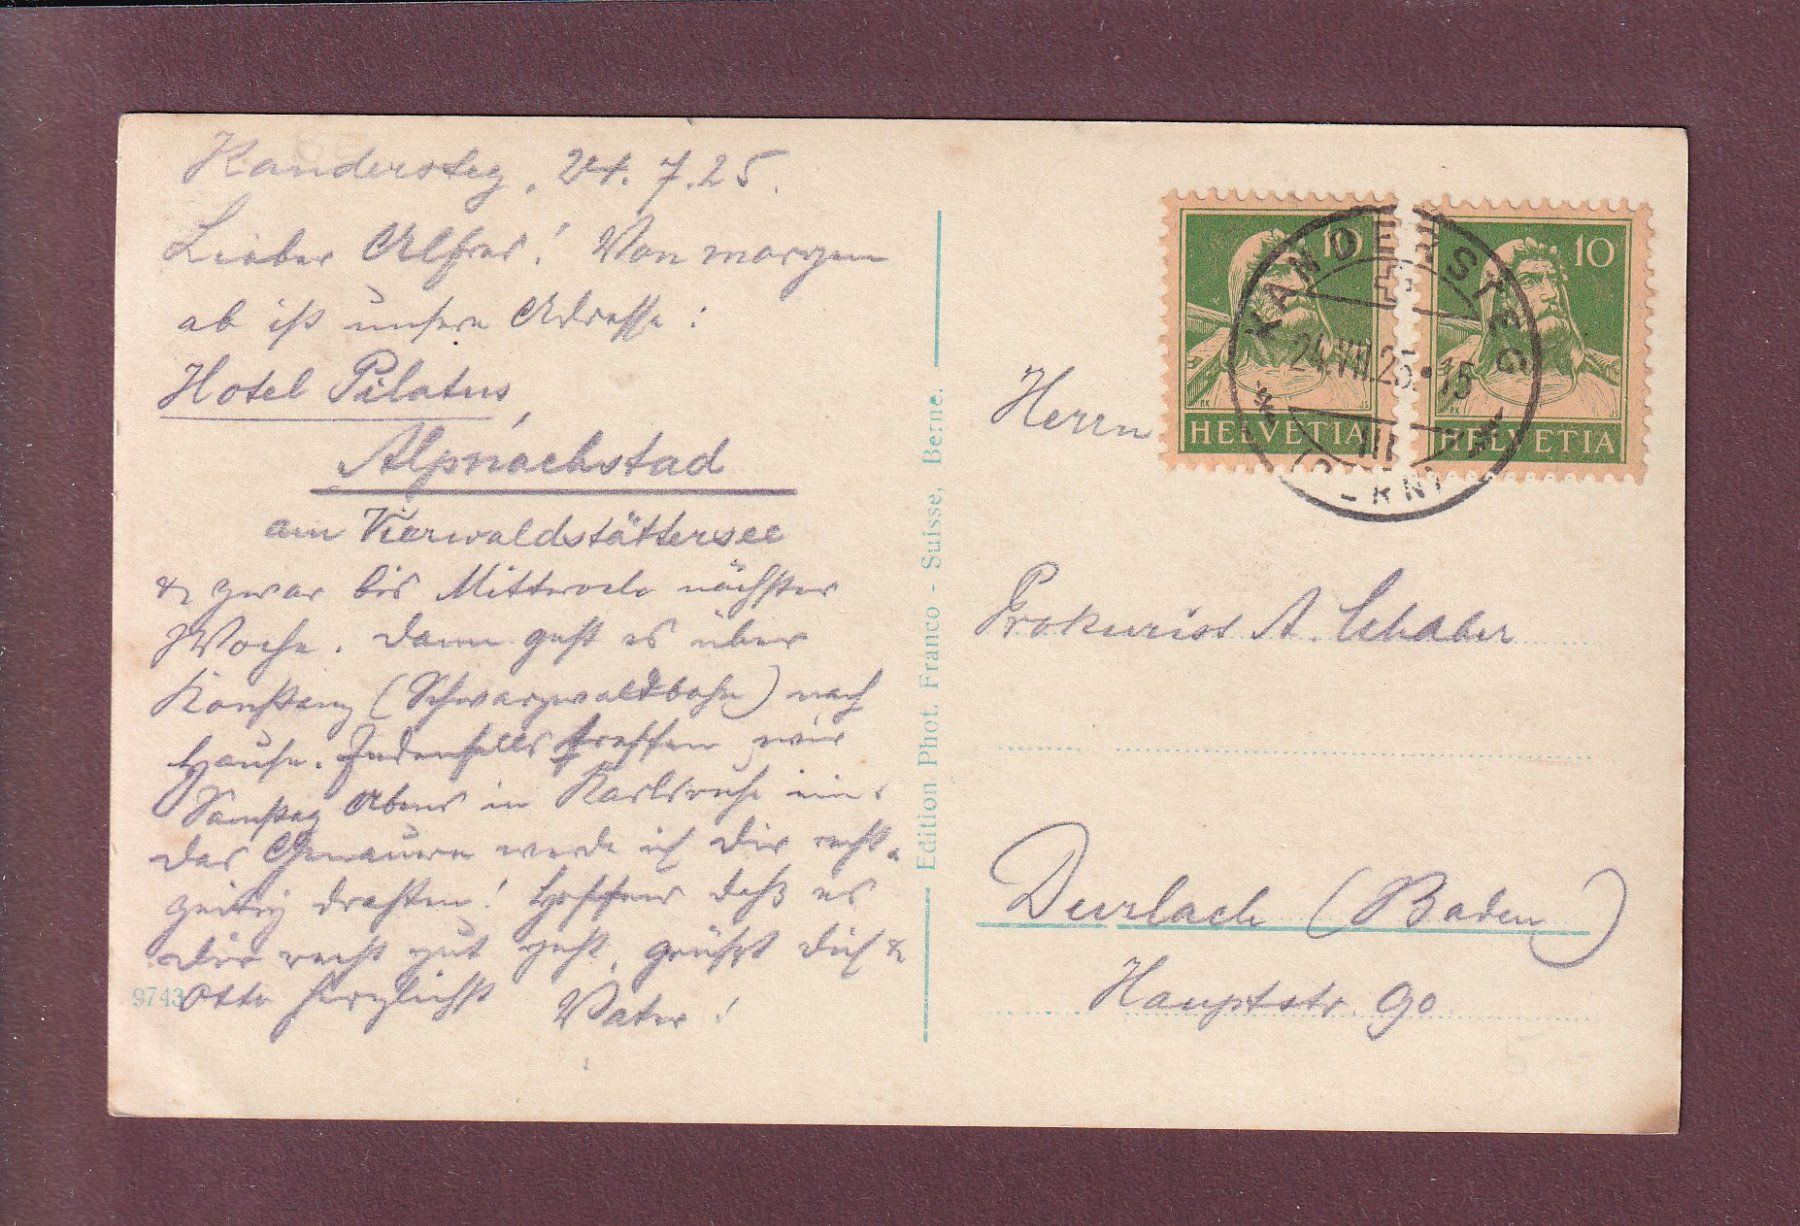 Kandersteg, 24.7.25.
Lieber Alfred! Von morgen
ab ist unsere Adresse:
Hotel Pilatus,
Alpnachstad
am Vierwaldstättersee
& zwar bis Mittwoch nächster
Woche. Dann geht es über
Konstanz (Schwarzwaldbahn) nach
Hause. Jedenfalls treffen wir
Samstag Abend in Karlsruhe ein.
Das Genauere werde ich Dir recht-
zeitig drahten! Hoffend daß es
Dir recht gut geht, grüßt Dich &
Otto herzlichst Vater!
9743
Edition Phot. Franco - Suisse, Berne.
10
HELVETIA
10
HELVETIA
KANDERSTEG
24.VII.25.-15
III
(BERN)
Herrn
Prokurist A. Schaber
Durlach (Baden)
Hauptstr. 90